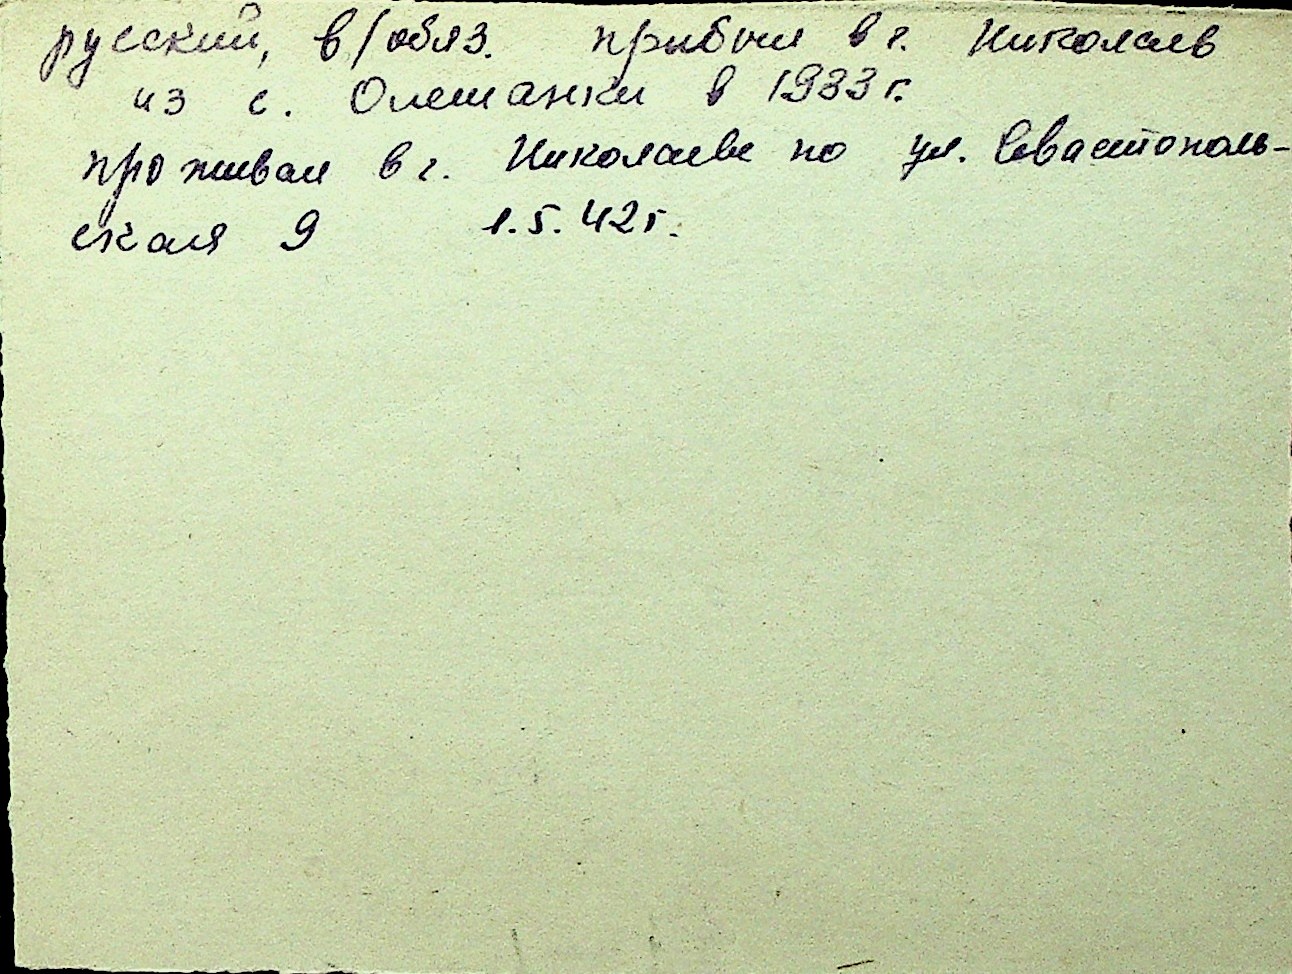 русский, в/обяз. прибыл в г. Николаев
из с. Олешанки в 1933 г.
проживал в г. Николаеве по ул. Севастополь-
ская 9 1.5.42 г.